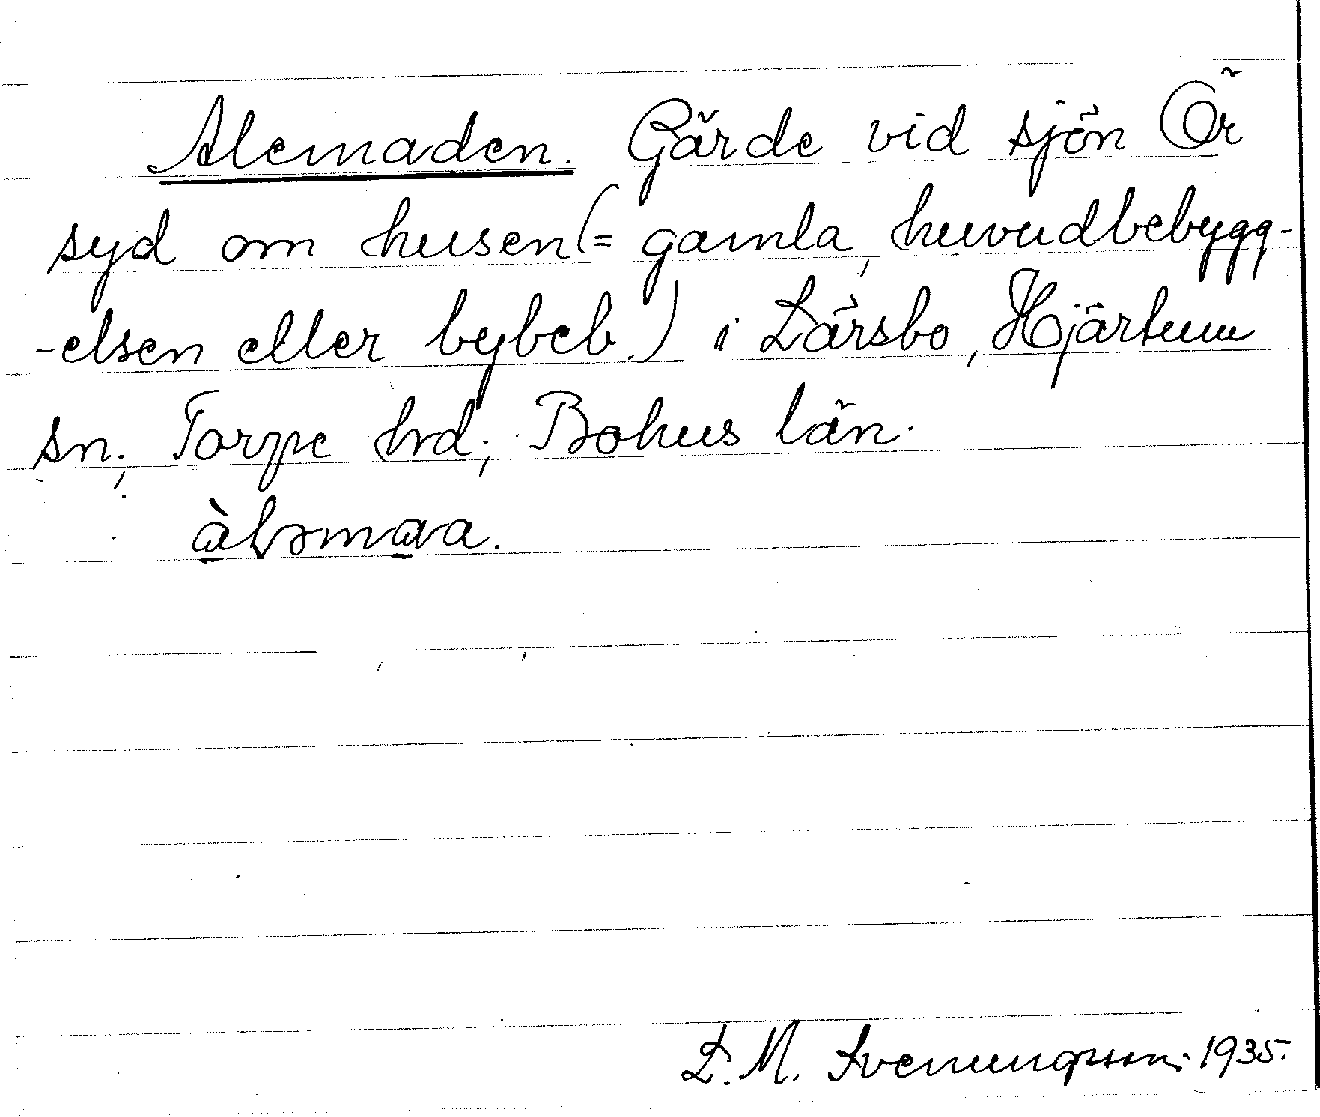 Alemaden. Gärde vid sjön Ör
syd om husen (= gamla huvudbebygg-
-elsen eller bybeb.) i Lärsbo, Hjärtum
sn; Torpe hrd; Bohus län.
àləmava.
L. M. Svenungsson. 1935.